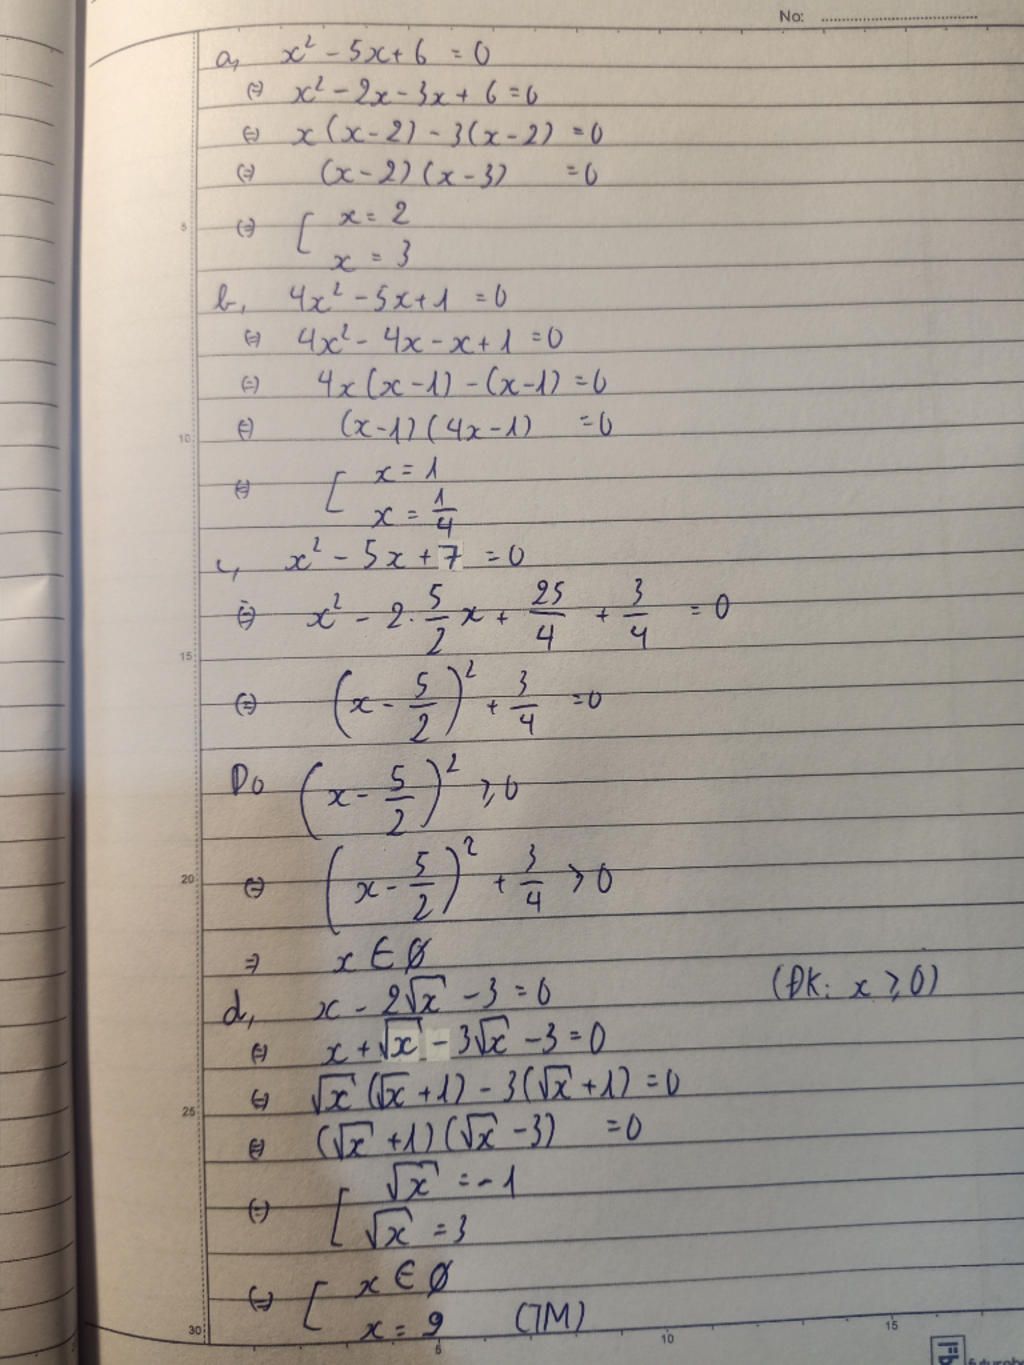 No:
a, x² - 5x + 6 = 0
(=) x² - 2x - 3x + 6 = 0
(=) x(x - 2) - 3(x - 2) = 0
(=) (x - 2)(x - 3) = 0
5 (=) [ x = 2
x = 3
b, 4x² - 5x + 1 = 0
(=) 4x² - 4x - x + 1 = 0
(=) 4x(x - 1) - (x - 1) = 0
10 (=) (x - 1)(4x - 1) = 0
(=) [ x = 1
x = 1/4
c, x² - 5x + 7 = 0
15 (=) x² - 2 . 5/2 x + 25/4 + 3/4 = 0
(=) (x - 5/2)² + 3/4 = 0
Do (x - 5/2)² ≥ 0
20 (=) (x - 5/2)² + 3/4 > 0
=) x ∈ ∅
d, x - 2√x - 3 = 0 (ĐK: x ≥ 0)
(=) x + √x - 3√x - 3 = 0
25 (=) √x (√x + 1) - 3(√x + 1) = 0
(=) (√x + 1)(√x - 3) = 0
(=) [ √x = -1
√x = 3
(=) [ x ∈ ∅
30 x = 9 (TM)
5 10 15